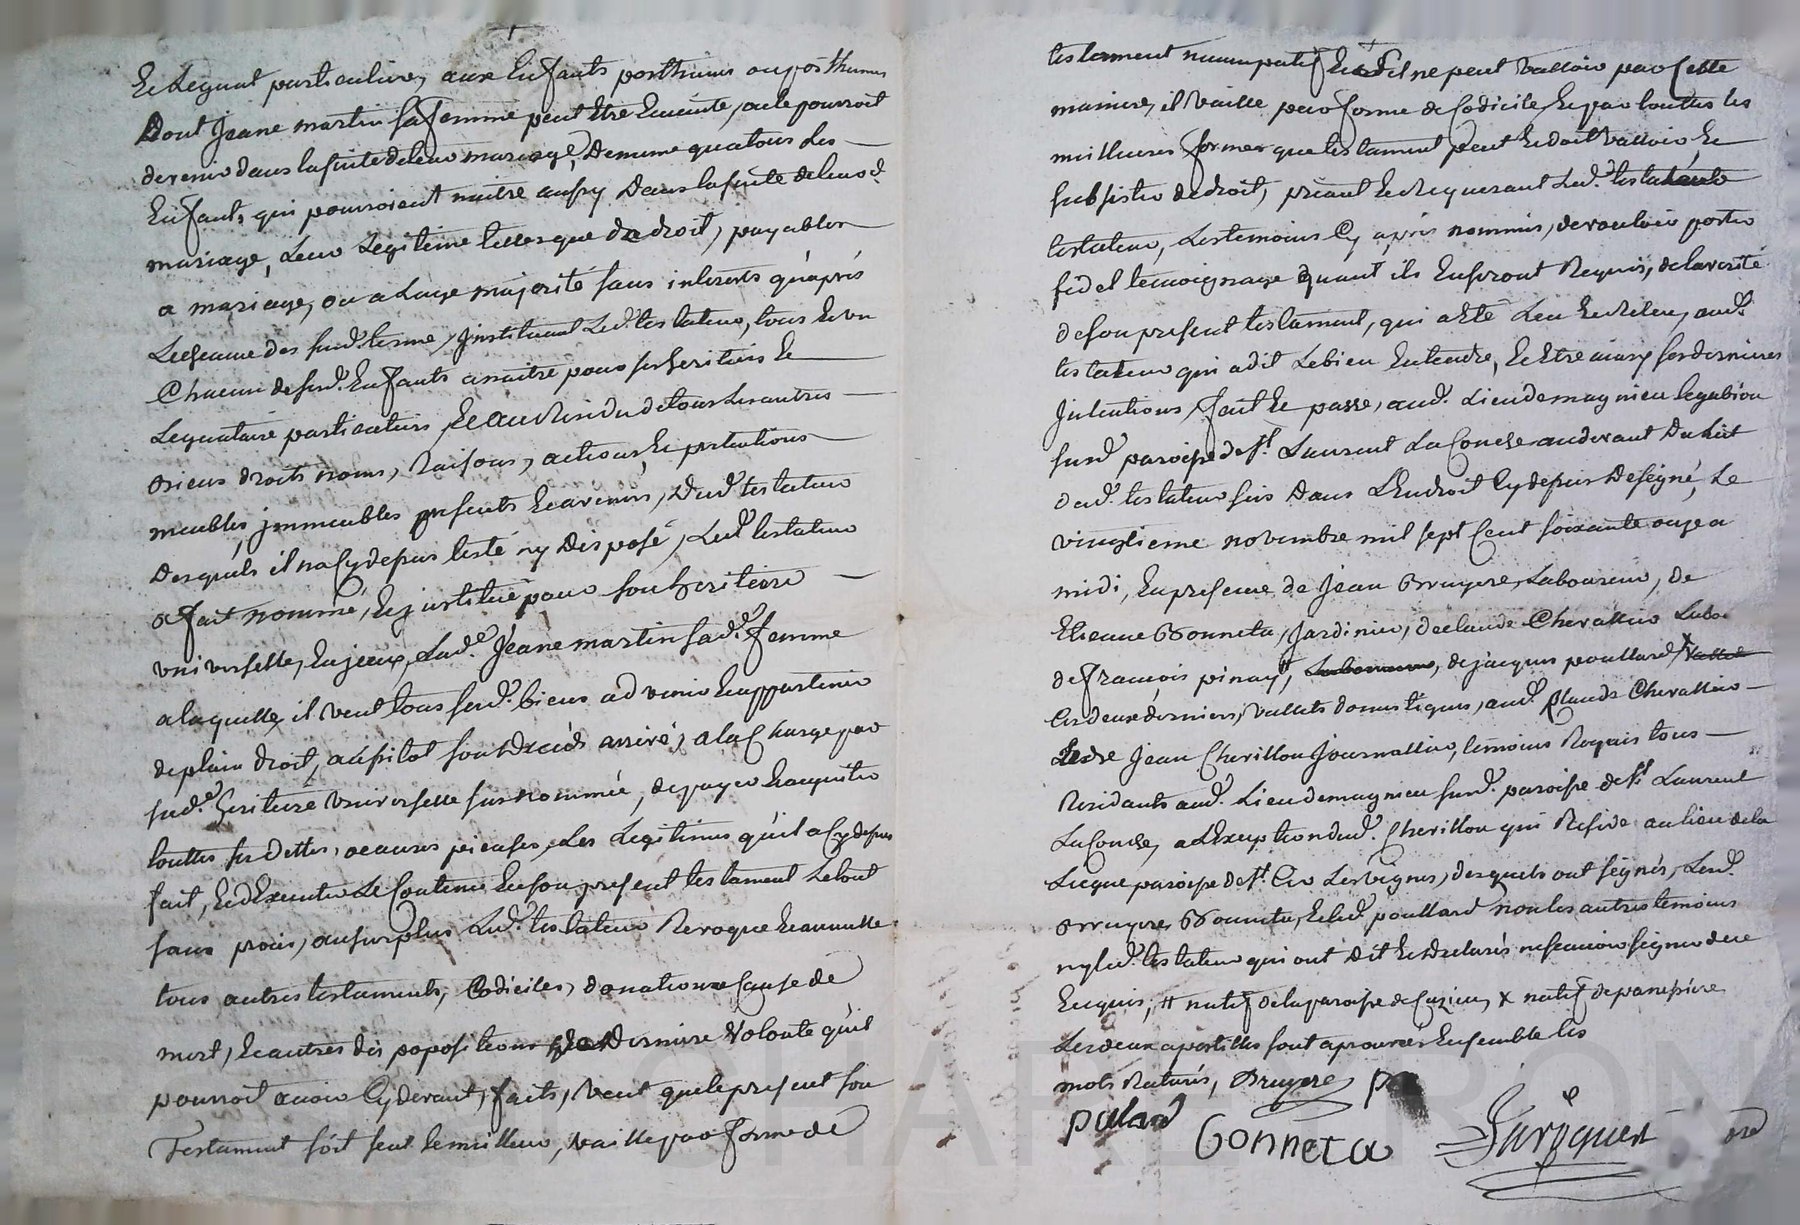 Et Leguat particulier, aux Enfants posthumes ou posthumes
Dont Jeane martin sa femme peut Etre Enceinte, ou le pourroit
devenir dans la suite de leur mariage, De meme qu'a tous Les
Enfants qui pourroient naitre aussy Dans la suite de leur d.
mariage, Leur Legitime telles que de droit, payables
a mariage, ou a L'age majorité sans interests qu'aprés
L'echeance des susd. terme, Instituant Led. testateur, tous Et un
Chacun de sesd. Enfants a naitre pour ses heritiers Et
Leguataire particuliers Et au Residu de tous Les autres
biens droits noms, Raisons, actions, Et pretentions
meubles, immeubles presents Et avenir, Dud. testateur
Desquels il na Cy depuis testé ny Disposé, Led. testateur
a fait nommé, Et institué pour son heritiere
universelle, Lad. Jeane martin sad. femme
a laquelle, il veut tous sesd. biens advenir Et appartenir
de plain droit, aussitot son Decéds arrivé, a la Charge par
sad. heritiere universelle susnommée, de payer Et acquitter
touttes ses dettes, Les Legitimes qu'il a Cy depuis
fait, Et d'Executer Le Contenu En son present testament Le tout
sans procés, au surplus Led. testateur Revoque Et annulle
tous autres testaments, Codiciles, donations a Cause de
mort, Et autres dispositions de Derniere Volonte qu'il
pourroit avoir Cy devant, faits, Veut que le present son
Testament soit seul Le meilleur, vaille par forme de
testament nuncupatif Et S'il ne peut Valloir par Cette
maniere, il Vaille par forme de Codicile, Et par touttes les
meilleures formes que testament peut Et doit Valloir, Et
subsister de droit, priant Et Requerant Led.
testateur, Les temoins Cy aprés nommés, de vouloir porter
fidel temoignage quant ils En seront Requis, de la verité
de son present testament, qui a Eté Leu Et Releu, aud.
testateur qui a dit Le bien Entendre, Et Etre ainsy ses dernieres
Intentions, fait Et passé, aud. Lieu de magnieu
susd. paroisse de St. Laurent La Conche au devant Du Lict
dud. testateur sis Dans L'Endroit Cy depuis Designé, Le
vingtieme novembre mil sept Cent soixante onze a
midi, En presence de Jean Bruyere, Laboureur, de
Etienne Gonneta, Jardinier, de claude Chevallier
de françois pinay, de jacques poullard
Les deux derniers, Vallets domestiques, aud. Claude Chevallier
Et de Jean Cherillon Journallier, temoins Requis tous
Residants aud. Lieu de magnieu susd. paroisse de St. Laurent
La Conche, a L'Exeption dud. Cherillon qui Reside au lieu de la
paroisse de St. Cir Les Vignes, desquels ont signés, Lesd.
Bruyere, Gonneta, Et led. poullard non les autres temoins
ny led. testateur qui ont dit Et Declarés ne scavoir signer de ce
Enquis, # natif de la paroisse de Cuzieu, x natif de
Les deux apostilles sont aprouvés Ensemble les
mots Raturés, Bruyere
pulard
Gonneta